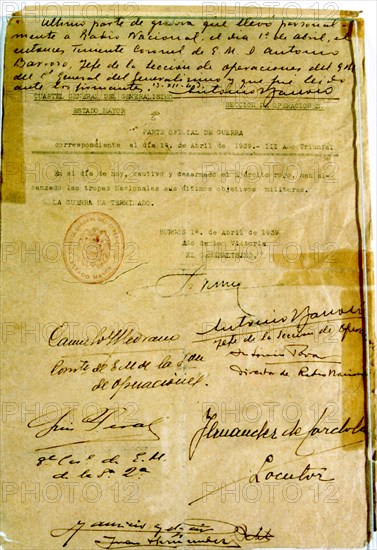 Último parte de guerra que llevó personal-
mente a Radio Nacional, el día 1º de abril, el
entonces Teniente Coronel de E.M. D. Antonio
Barroso, Jefe de la Sección de operaciones del E.M.
del C. General del Generalísimo y que fué leido
ante los firmantes.
Antonio Barroso
CUARTEL GENERAL DEL GENERALISIMO
SECCION DE OPERACIONES
ESTADO MAYOR
PARTE OFICIAL DE GUERRA
correspondiente al día 1º. de Abril de 1939.- III Año Triunfal
En el día de hoy, cautivo y desarmado el Ejército rojo, han al-
canzado las tropas Nacionales sus últimos objetivos militares.
LA GUERRA HA TERMINADO.
BURGOS 1º. de Abril de 1939
Año de la Victoria
EL GENERALISIMO,
ESTADO MAYOR
Antonio Barroso
Camilo Medrano
Jefe de la Sección de Opera
Comte de E.M. de la
Antonio
de operaciones.
Director de Radio Nacional
Luis
Fernandez de Cordoba
de E.M.
Locutor
de la 
Juan Hernández
PHOTO 12